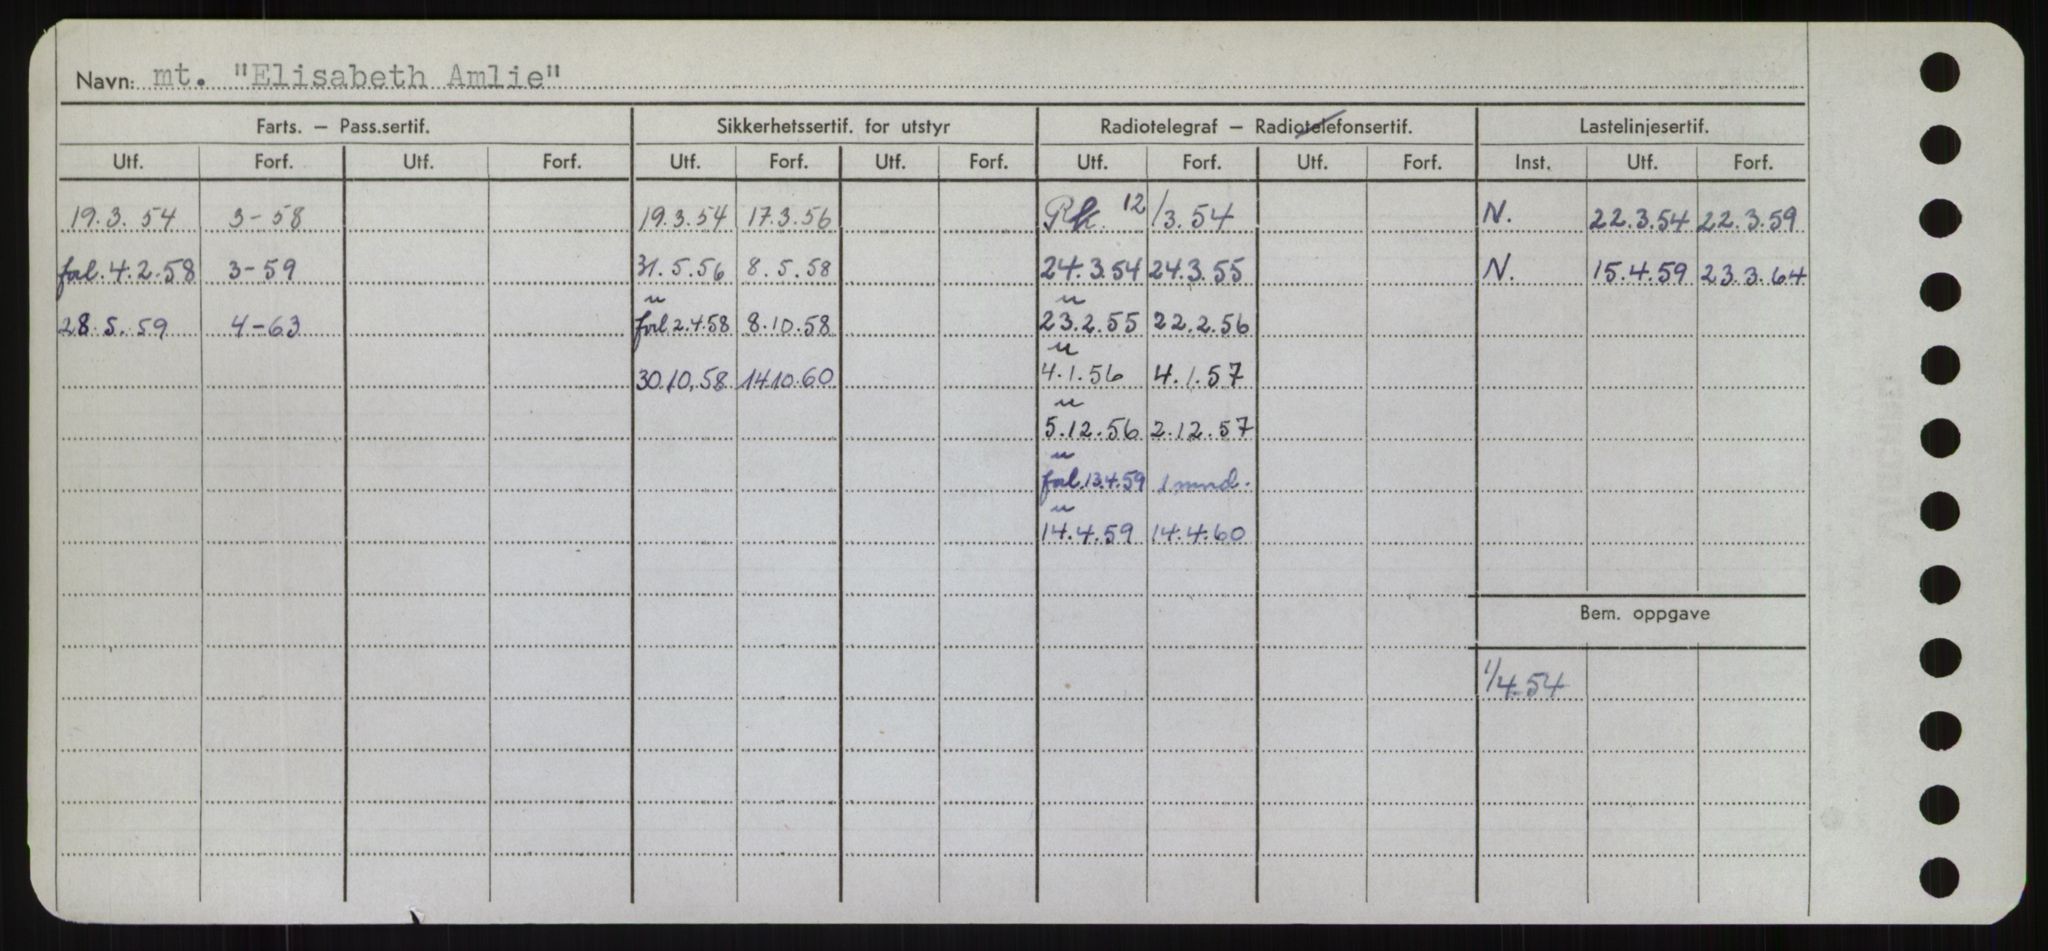 Navn: mt. "Elisabeth Amlie"
Farts. — Pass.sertif. Sikkerhetssertif. for utstyr Radiotelegraf — Radiotelefonsertif. Lastelinjesertif.
Utf. Forf. Utf. Forf. Utf. Forf. Utf. Forf. Utf. Forf. Utf. Forf. Inst. Utf. Forf.
19.3.54 3-58 19.3.54 17.3.56 12/3.54 N. 22.3.54 22.3.59
forl. 4.2.58 3-59 31.5.56 8.5.58 24.3.54 24.3.55 N. 15.4.59 23.3.64
28.5.59 4-63 forl 2.4.58 8.10.58 23.2.55 22.2.56
30.10.58 14.10.60 4.1.56 4.1.57
5.12.56 2.12.57
forl. 13.4.59 1 mnd.
14.4.59 14.4.60
Bem. oppgave
1/4.54